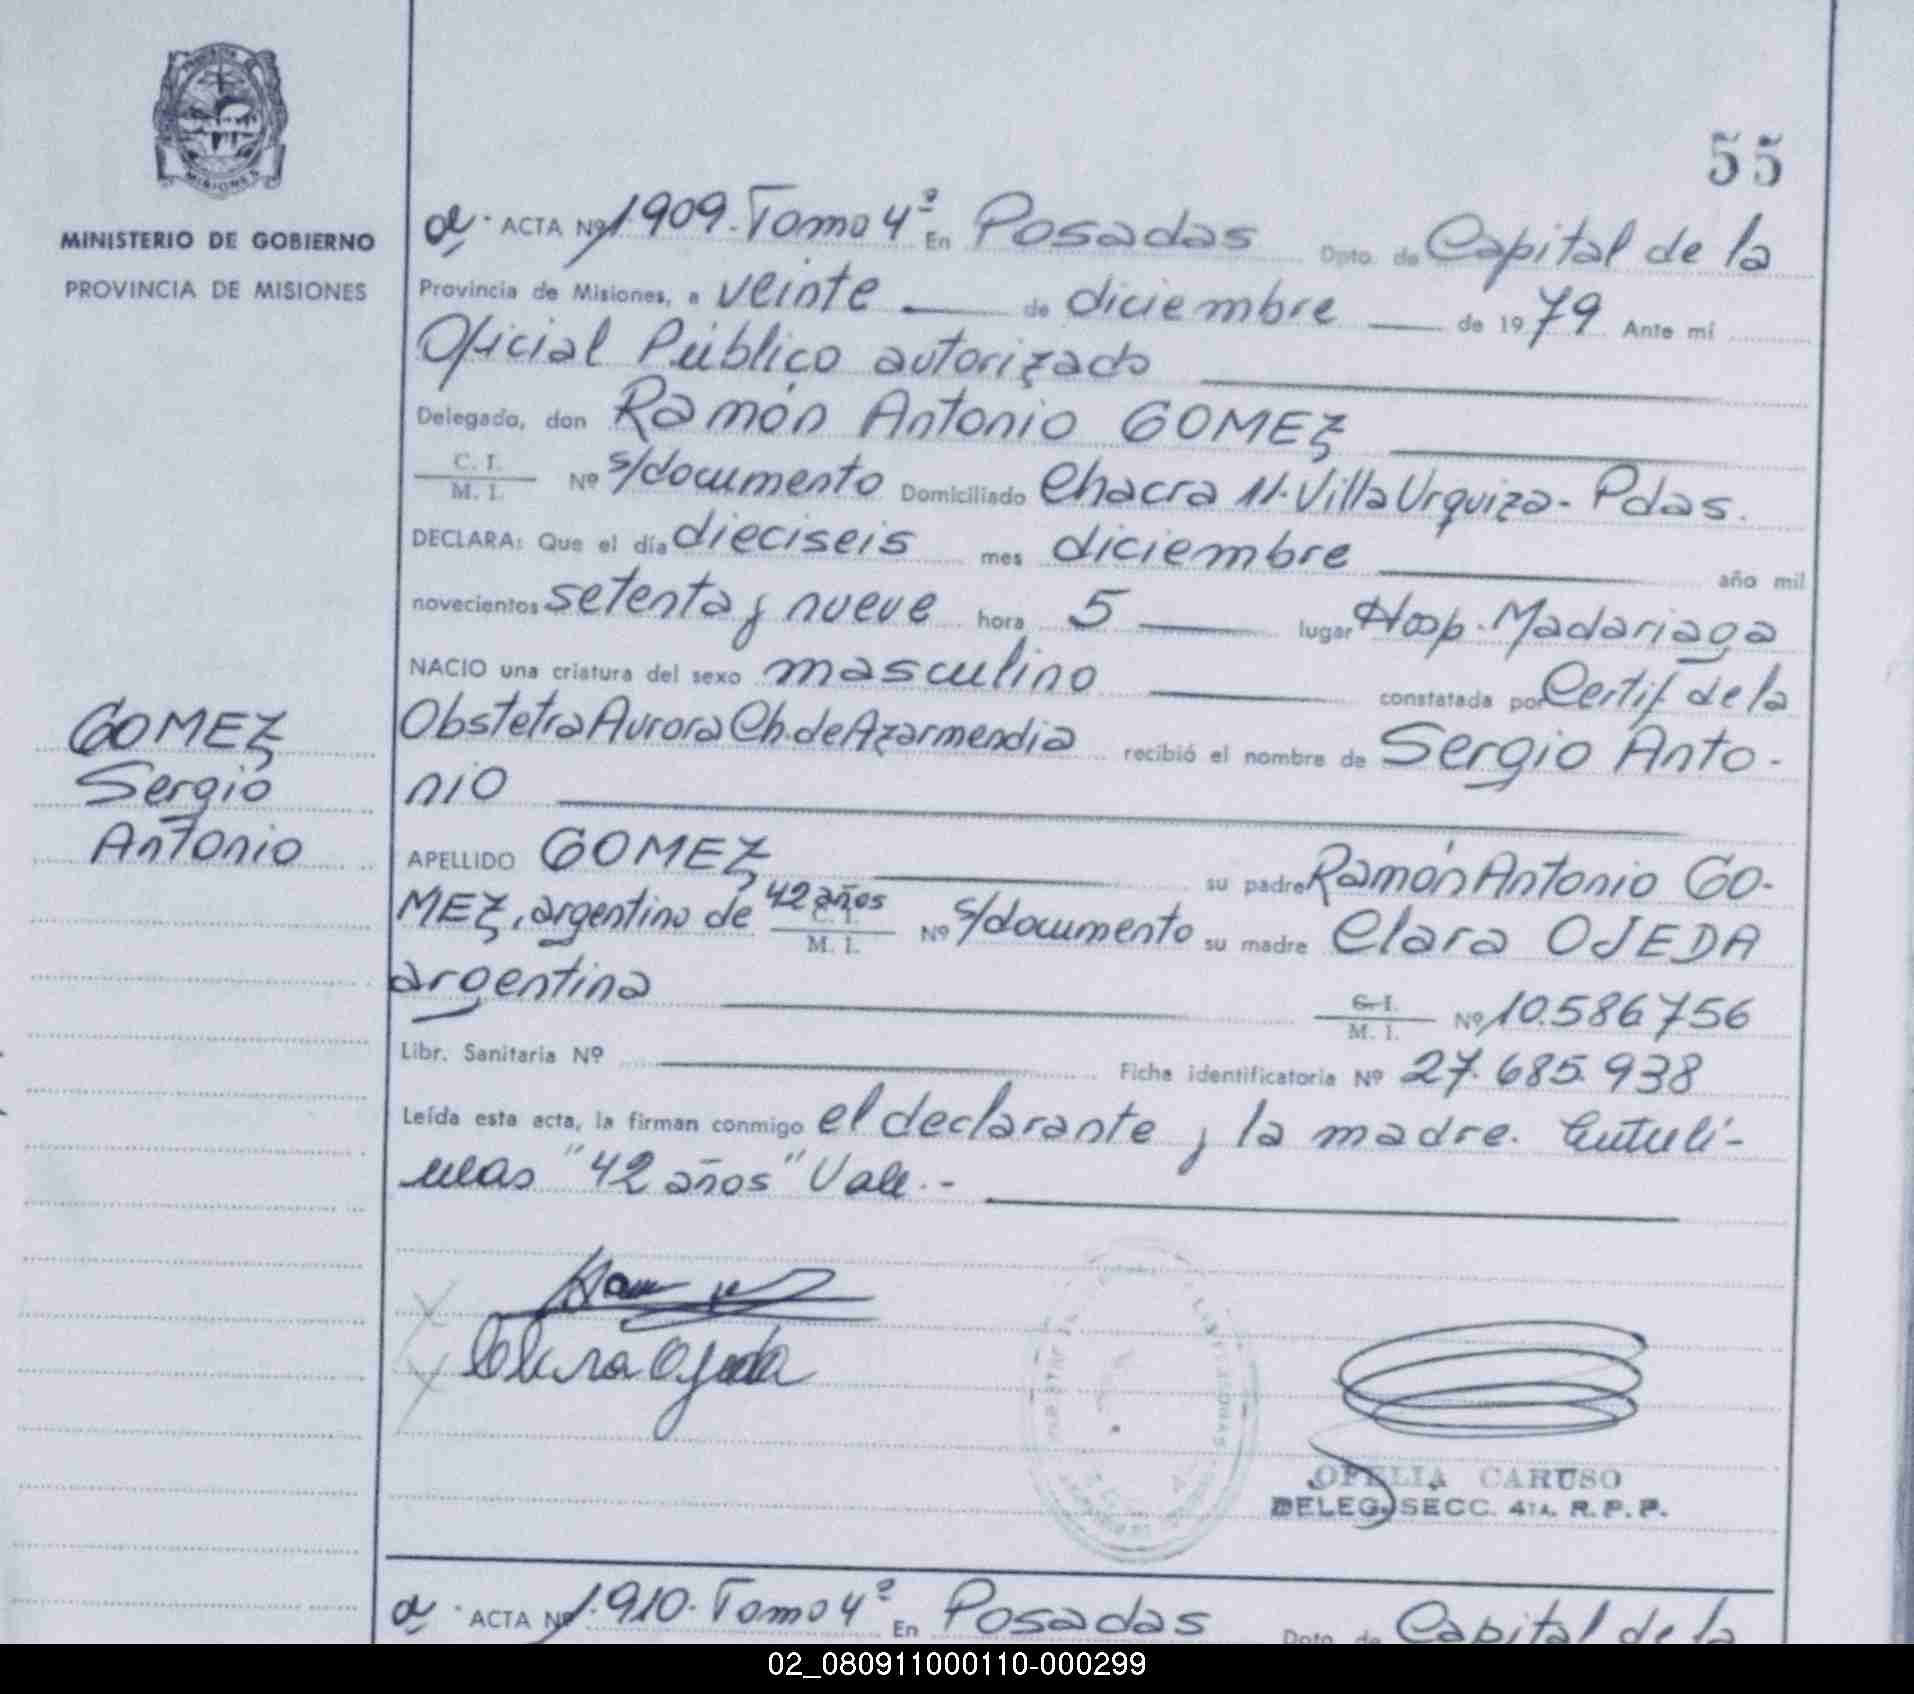 MISIONES
MINISTERIO DE GOBIERNO
PROVINCIA DE MISIONES
55
ACTA Nº 1.909. Tomo 4º En Posadas Dpto. de Capital de la
Provincia de Misiones, a veinte de diciembre de 1979 Ante mí
Oficial Público autorizado
Delegado, don Ramón Antonio GOMEZ
C. I.
M. I. Nº s/documento Domiciliado Chacra 11. Villa Urquiza - Pdas.
DECLARA: Que el día dieciseis mes diciembre año mil
novecientos setenta y nueve hora 5 lugar Hosp. Madariaga
NACIO una criatura del sexo masculino constatada por Certif de la
Obstetra Aurora Ch. de Azarmendia recibió el nombre de Sergio Anto-
nio
GOMEZ
Sergio
Antonio
APELLIDO GOMEZ su padre Ramón Antonio GO-
MEZ, argentino de 42 años C. I. M. I. Nº s/documento su madre Clara OJEDA
argentina C. I. M. I. Nº 10.586756
Libr. Sanitaria Nº Ficha identificatoria Nº 27.685.938
Leída esta acta, la firman conmigo el declarante y la madre. Entreli-
neas "42 años" Vale.-
Clara Ojeda
OFELIA CARUSO
DELEG. SECC. 4TA. R. P. P.
ACTA Nº 1.910. Tomo 4º En Posadas Dpto. de Capital de la
02_080911000110-000299